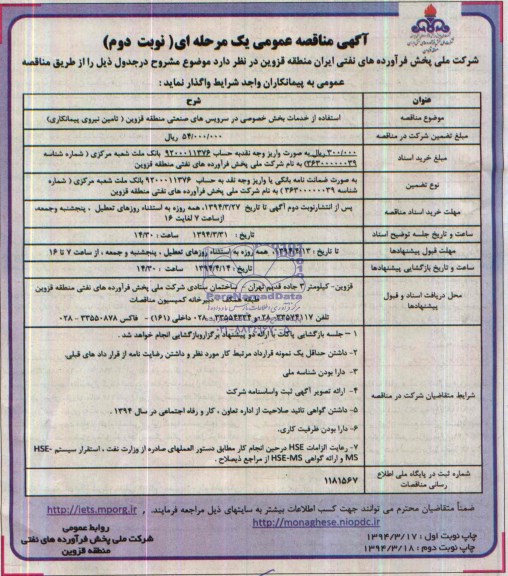 آگهی مناقصه عمومی یک مرحله ای( نوبت دوم)
شرکت ملی پخش فرآورده های نفتی ایران منطقه قزوین در نظر دارد موضوع مشروح درجدول ذیل را از طریق مناقصه
عمومی به پیمانکاران واجد شرایط واگذار نماید:
عنوان شرح
موضوع مناقصه استفاده از خدمات بخش خصوصی در سرویس های صنعتی منطقه قزوین ( تامین نیروی پیمانکاری)
مبلغ تضمین شرکت در مناقصه ۵۴/۰۰۰/۰۰۰ ریال
مبلغ خرید اسناد ۳۰۰/۰۰۰ ریال به صورت واریز وجه نقدبه حساب ۹۲۰۰۰۱۱۳۷۶ بانک ملت شعبه مرکزی ( شماره شناسه
۳۶۳۰۰۰۰۰۰۳۹) به نام شرکت ملی پخش فرآورده های نفتی منطقه قزوین
نوع تضمین به صورت ضمانت نامه بانکی یا واریز وجه نقد به حساب ۹۲۰۰۰۱۱۳۷۶ بانک ملت شعبه مرکزی ( شماره
شناسه ۳۶۳۰۰۰۰۰۰۳۹ ) به نام شرکت ملی پخش فرآورده های نفتی منطقه قزوین
مهلت خرید اسناد مناقصه پس از انتشارنوبت دوم آگهی تا تاریخ ۱۳۹۴/۳/۲۷، همه روزه به استثناء روزهای تعطیل ، پنجشنبه وجمعه،
ازساعت ۷ لغایت ۱۶
ساعت و تاریخ جلسه توضیح اسناد تاریخ : ۱۳۹۴/۳/۳۱ ساعت : ۱۴/۳۰
مهلت قبول پیشنهادها تا تاریخ ۱۳۹۴/۴/۱۳، همه روزه به استثناء روزهای تعطیل ، پنجشنبه و جمعه ، از ساعت ۷ تا ۱۶
ساعت و تاریخ بازگشایی پیشنهادها تاریخ : ۱۳۹۴/۴/۱۴ ساعت : ۱۴/۳۰
محل دریافت اسناد و قبول پیشنهادها قزوین- کیلومتر ۳ جاده قدیم تهران - ساختمان ستادی شرکت ملی پخش فرآورده های نفتی منطقه قزوین
دبیرخانه کمیسیون مناقصات
تلفن ۳۳۵۷۴۱۱۷-۰۲۸ و ۳۳۵۵۴۳۳۴-۰۲۸ داخلی (۱۶۱) - فاکس ۳۳۵۵۰۸۷۸-۰۲۸
شرایط متقاضیان شرکت در مناقصه
۱ – جلسه بازگشایی پاکات با ارائه دو پیشنهاد برگزاروبازگشایی انجام خواهد شد .
۲- داشتن حداقل یک نمونه قرارداد مرتبط کار مورد نظر و داشتن رضایت نامه از قرار داد های قبلی.
۳- دارا بودن شناسه ملی
۴- ارائه تصویر آگهی ثبت واساسنامه شرکت
۵- داشتن گواهی تائید صلاحیت از اداره تعاون ، کار و رفاه اجتماعی در سال ۱۳۹۴ .
۶- دارا بودن ظرفیت کاری.
۷- رعایت الزامات HSE درحین انجام کار مطابق دستور العملهای صادره از وزارت نفت ، استقرار سیستم HSE-
MS و ارائه گواهی HSE-MS از مراجع ذیصلاح .
شماره ثبت در پایگاه ملی اطلاع رسانی مناقصات ۱۱۸۱۵۶۷
ضمناً متقاضیان محترم می توانند جهت کسب اطلاعات بیشتر به سایتهای ذیل مراجعه فرمایند. http://iets.mporg.ir ,
http://monaghese.niopdc.ir
چاپ نوبت اول : ۱۳۹۴/۳/۱۷
چاپ نوبت دوم : ۱۳۹۴/۳/۱۸
روابط عمومی
شرکت ملی پخش فرآورده های نفتی
منطقه قزوین
ParsNamadData